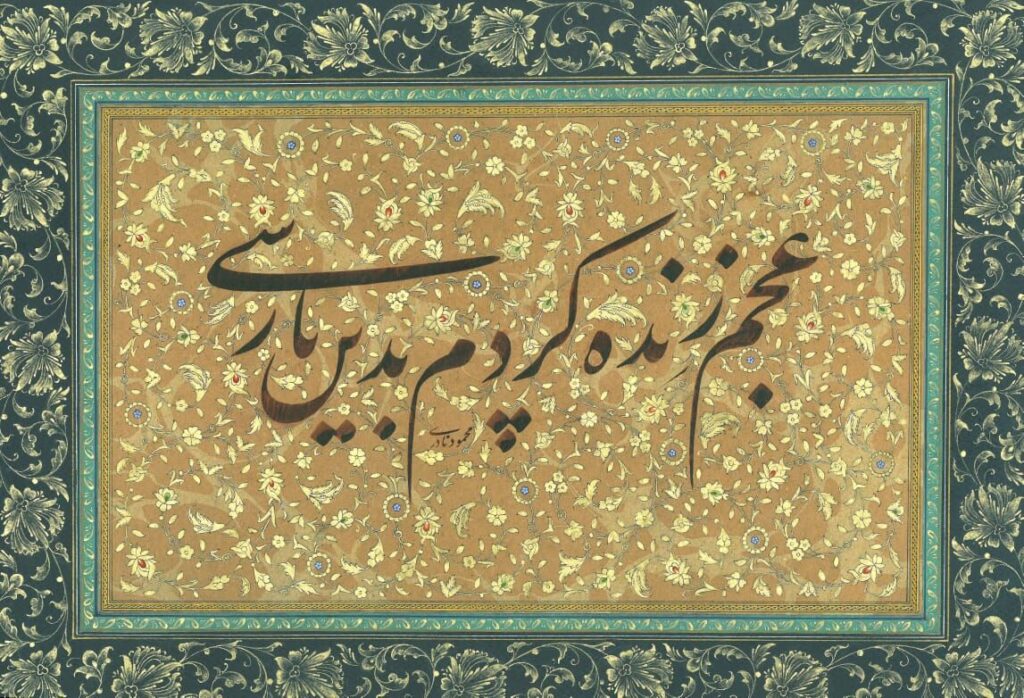 عجم زنده کردم بدین پارسی
محمود نادری